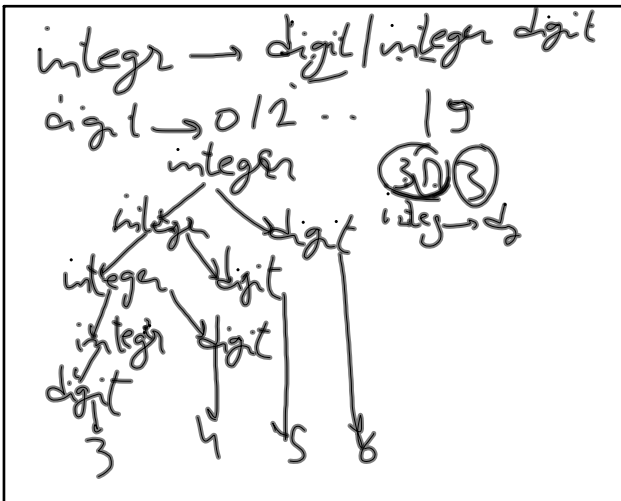 integr → digit | integer digit
digit → 0 | 2 .. | 9
integer
30 3
integr digit
integ → dg
integer digit
integr digit
digit
3 4 5 6